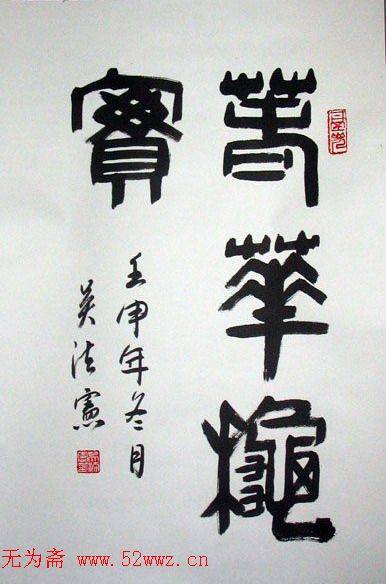 萅華龝
實
壬申年冬月
吴法憲
无为斋 www.52wwz.cn